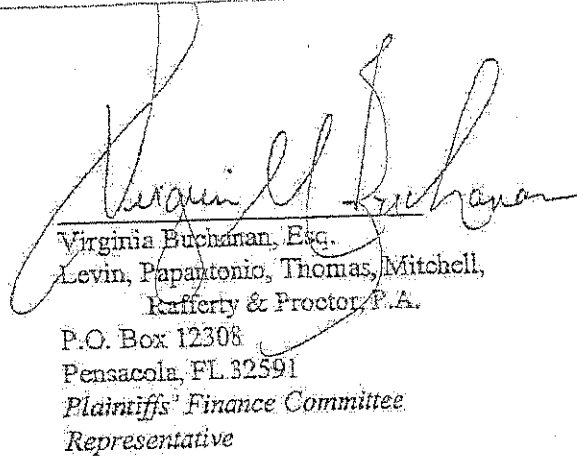 Virginia M Buchanan
Virginia Buchanan, Esq.
Levin, Papantonio, Thomas, Mitchell,
Rafferty & Proctor, P.A.
P.O. Box 12308
Pensacola, FL 32591
Plaintiffs' Finance Committee
Representative